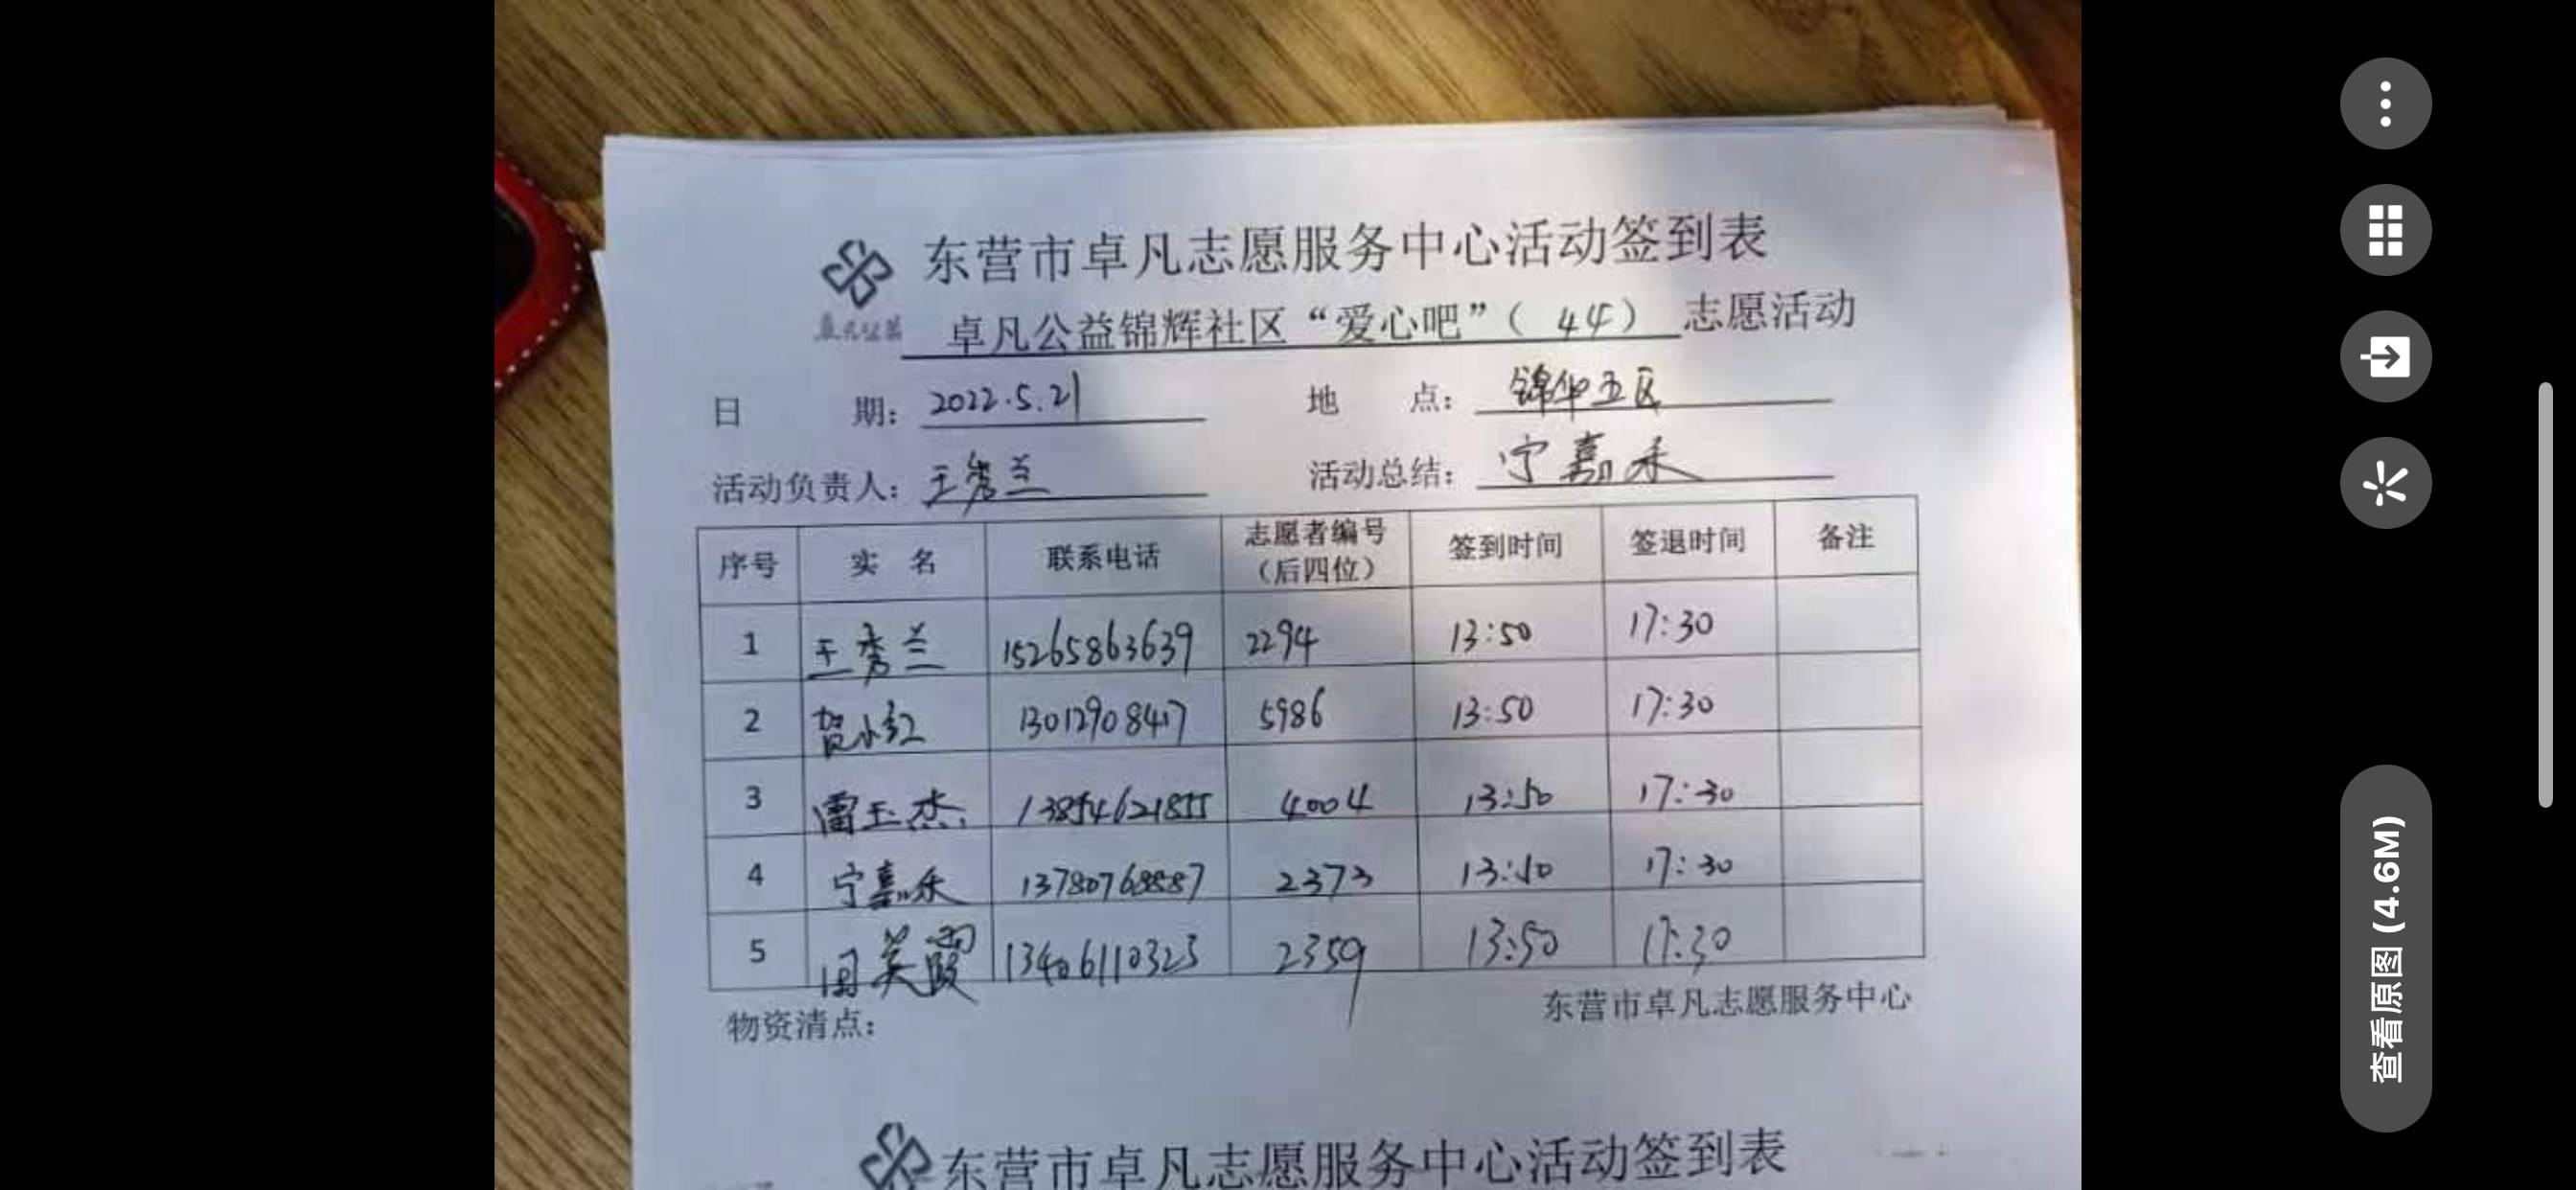 东营市卓凡志愿服务中心活动签到表
卓凡公益
卓凡公益锦辉社区“爱心吧”( 44 ) 志愿活动
日 期: 2022.5.21 地 点: 锦华五区
活动负责人: 王秀兰 活动总结: 宁嘉禾
序号 实 名 联系电话 志愿者编号(后四位) 签到时间 签退时间 备注
1 王秀兰 15265863639 2294 13:50 17:30
2 贺小红 13012908417 5986 13:50 17:30
3 雷玉杰 13854621855 4004 13:50 17:30
4 宁嘉禾 13780768887 2373 13:50 17:30
5 周美霞 13406110323 2359 13:50 17:30
物资清点: 东营市卓凡志愿服务中心
东营市卓凡志愿服务中心活动签到表
查看原图 (4.6M)